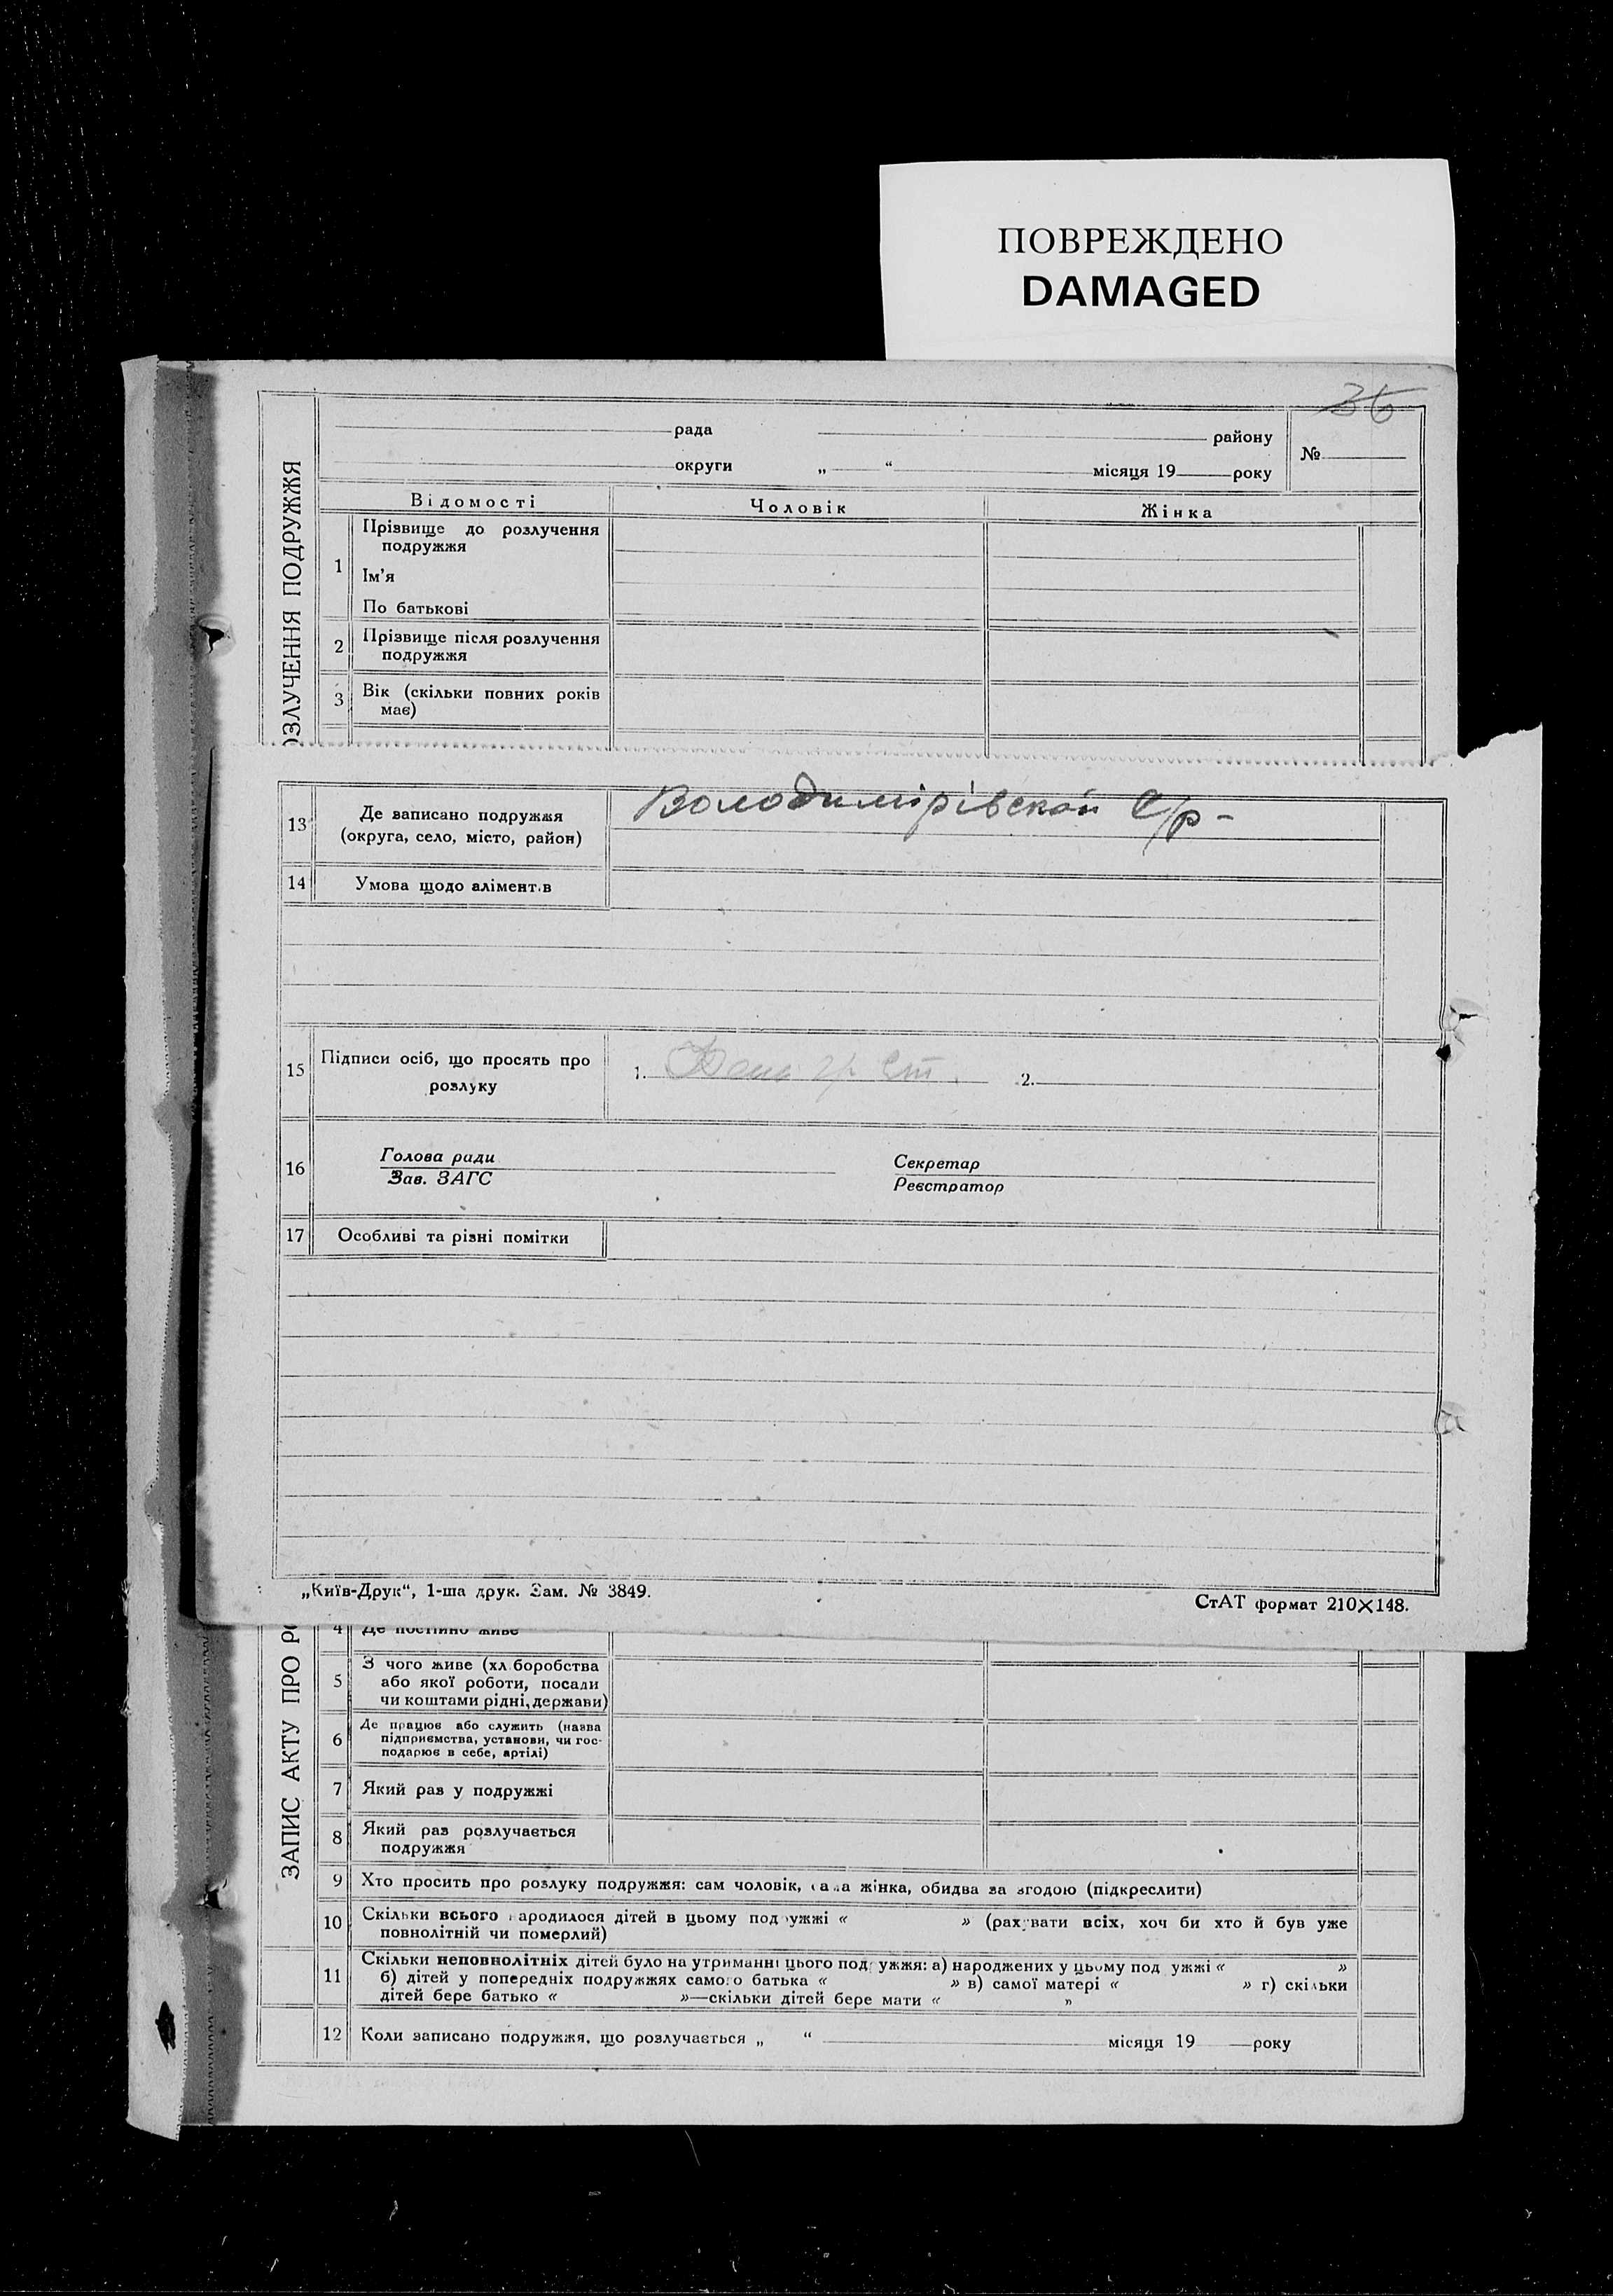 ПОВРЕЖДЕНО
DAMAGED
36
рада району
№
округи „ “ місяця 19 року
Відомості Чоловік Жінка
ОЗЛУЧЕННЯ ПОДРУЖЖЯ
1 Прізвище до розлучення
подружжя
Ім’я
По батькові
2 Прізвище після розлучення
подружжя
3 Вік (скільки повних років
має)
13 Де записано подружжя
(округа, село, місто, район)
Володимірівской С/р -
14 Умова щодо алімент.в
15 Підписи осіб, що просять про
розлуку
1. 2.
16 Голова ради Секретар
Зав. ЗАГС Реєстратор
17 Особливі та різні помітки
„Київ-Друк“, 1-ша друк. Зам. № 3849.
СтАТ формат 210×148.
ЗАПИС АКТУ ПРО РО
4 Де постійно живе
5 З чого живе (хл боробства
або якої роботи, посади
чи коштами рідні, держави)
6 Де працює або служить (назва
підприємства, установи, чи гос-
подарює в себе, артілі)
7 Який раз у подружжі
8 Який раз розлучається
подружжя
9 Хто просить про розлуку подружжя: сам чоловік, сама жінка, обидва за згодою (підкреслити)
10 Скільки всього народилося дітей в цьому подружжі « » (рахувати всіх, хоч би хто й був уже
повнолітній чи померлий)
11 Скільки неповнолітніх дітей було на утриманні цього подружжя: а) народжених у цьому подружжі « »
б) дітей у попередніх подружжях самого батька « » в) самої матері « » г) скільки
дітей бере батько « »—скільки дітей бере мати « „
12 Коли записано подружжя, що розлучається „ “ місяця 19 року